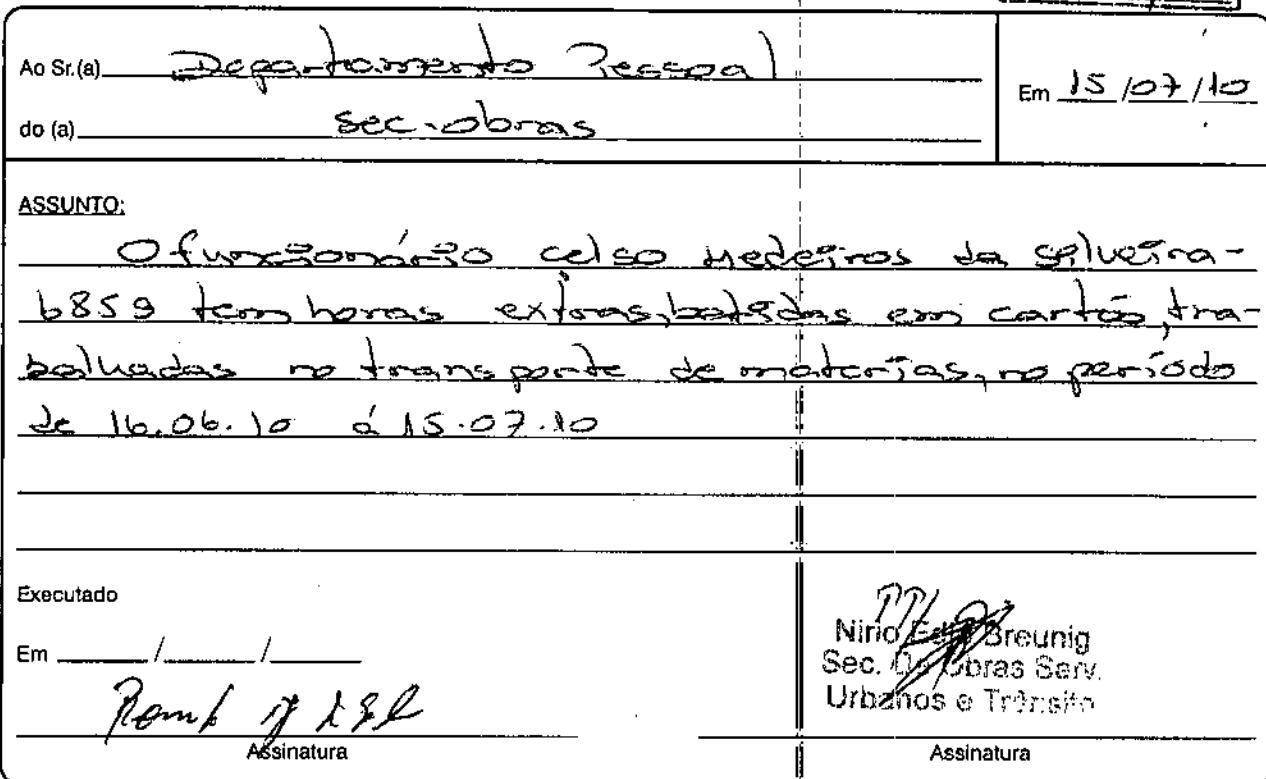 Ao Sr.(a) Departamento Pessoal
Em 15/07/10
do (a) Sec. obras
ASSUNTO:
O funcionário celso Medeiros da Silveira-
6859 tem horas extras, batidas em cartão, tra-
balhadas no transporte de materias, no período
de 16.06.10 á 15.07.10
Executado
Em ____/____/____
Nirio Breunig
Sec. De Obras Serv.
Urbanos e Trânsito
Assinatura
Assinatura